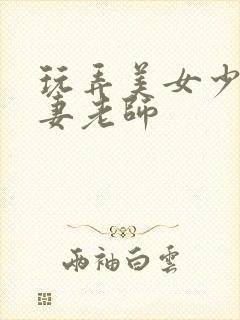 玩弄美女少
妻老師
兩袖白雲